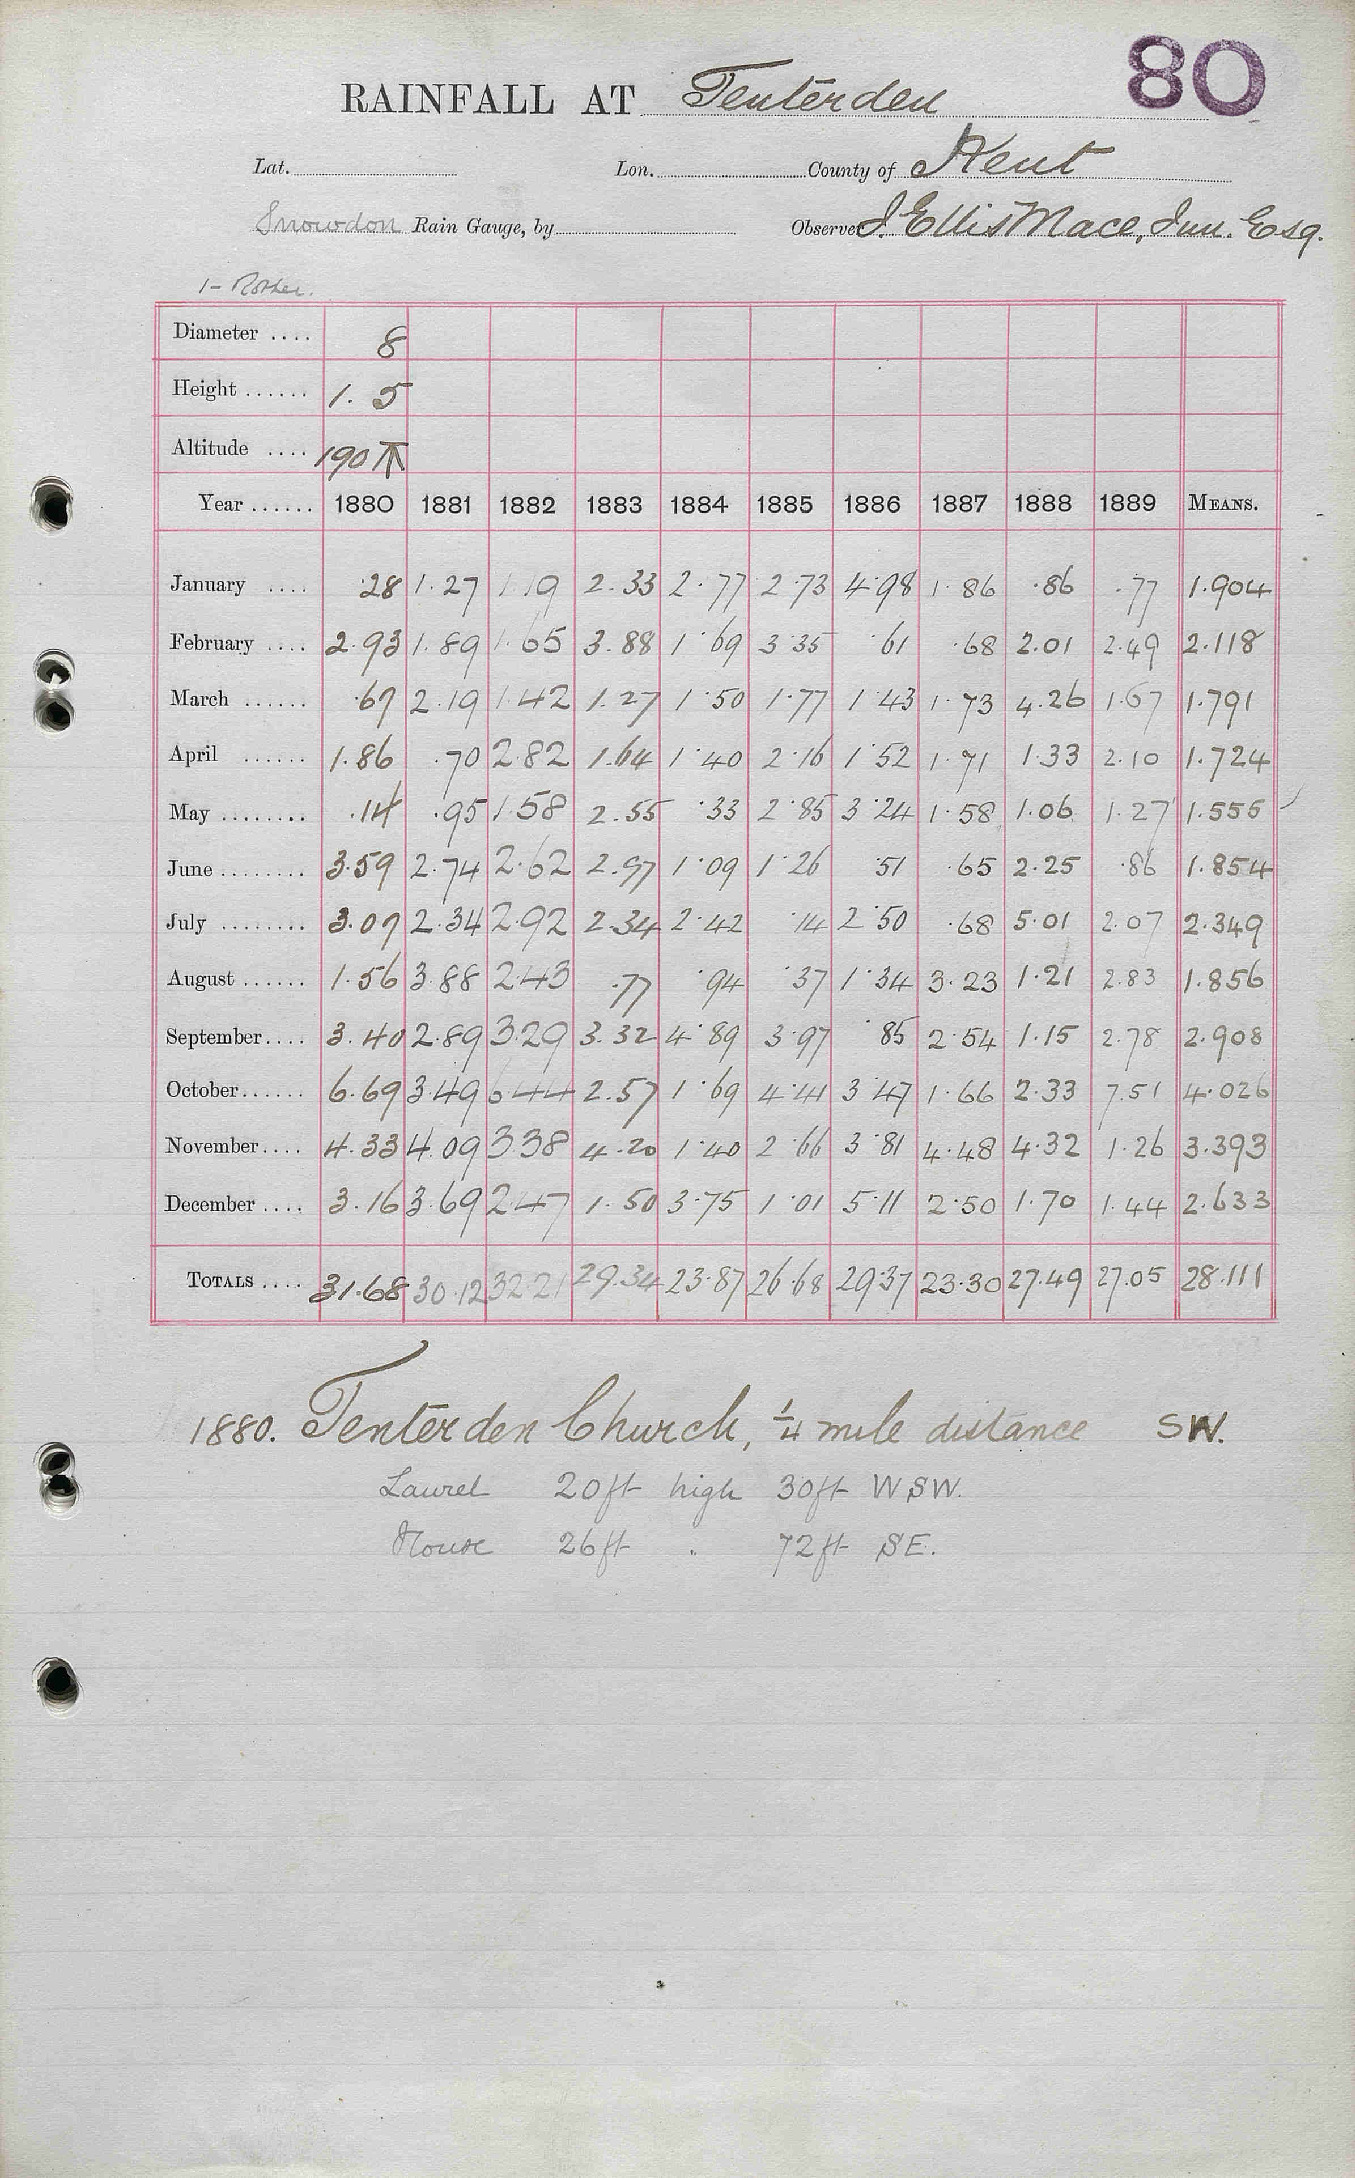 80
RAINFALL AT Tenterden
Lat. Lon. County of Kent
Snowdon Rain Gauge, by Observer J. Ellis Mace, Jun. Esq.
1- Rother.
Diameter .... 8
Height ...... 1. 5
Altitude .... 190
Year ...... 1880 1881 1882 1883 1884 1885 1886 1887 1888 1889 MEANS.
January .... .28 1.27 1.19 2.33 2.77 2.73 4.98 1.86 .86 .77 1.904
February .... 2.93 1.89 1.65 3.88 1.69 3.35 .61 .68 2.01 2.49 2.118
March ...... .67 2.19 1.42 1.27 1.50 1.77 1.43 1.73 4.26 1.67 1.791
April ...... 1.86 .70 2.82 1.64 1.40 2.16 1.52 1.71 1.33 2.10 1.724
May ........ .14 .95 1.58 2.55 .33 2.85 3.24 1.58 1.06 1.27 1.555
June ........ 3.59 2.74 2.62 2.97 1.09 1.26 .51 .65 2.25 .86 1.854
July ........ 3.07 2.34 2.92 2.34 2.42 .14 2.50 .68 5.01 2.07 2.349
August ...... 1.56 3.88 2.43 .77 .94 .37 1.34 3.23 1.21 2.83 1.856
September.... 3.40 2.89 3.29 3.32 4.89 3.97 .85 2.54 1.15 2.78 2.908
October...... 6.69 3.49 6.44 2.57 1.69 4.41 3.47 1.66 2.33 7.51 4.026
November.... 4.33 4.09 3.38 4.20 1.40 2.66 3.81 4.48 4.32 1.26 3.393
December .... 3.16 3.69 2.47 1.50 3.75 1.01 5.11 2.50 1.70 1.44 2.633
TOTALS .... 31.68 30.12 32.21 29.34 23.87 26.68 29.37 23.30 27.49 27.05 28.111
1880. Tenterden Church, 1/4 mile distance SW.
Laurel 20ft high 30ft WSW.
House 26ft . 72ft SE.